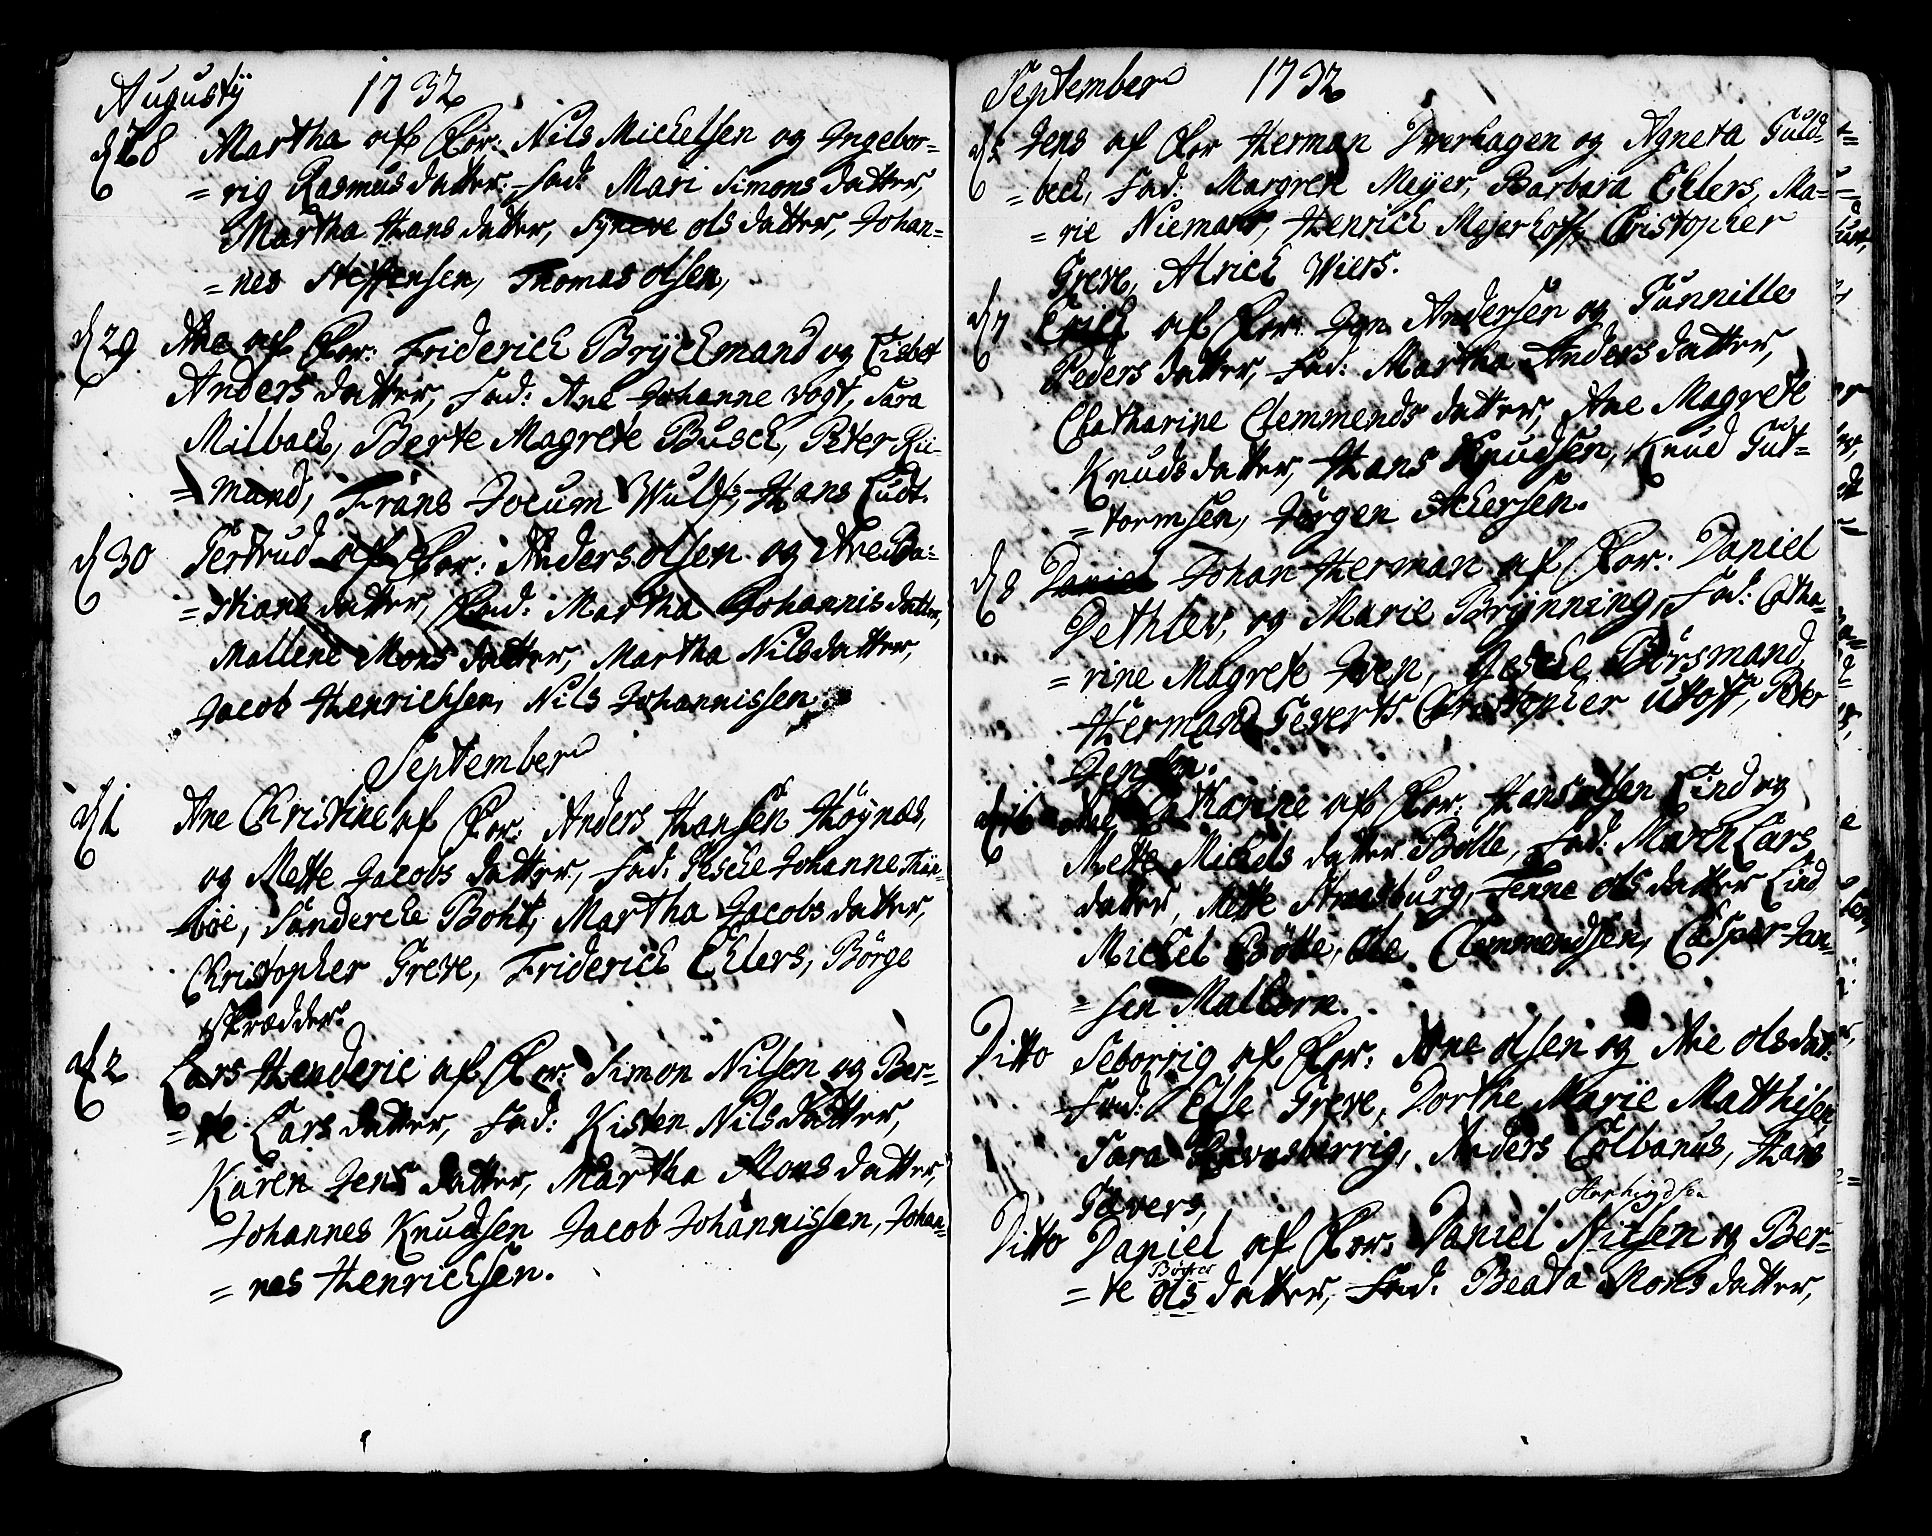 Augustij 1732
d 28 Martha af For: Nils Michelsen og Ingebor=
= rig Rasmus datter, Fad: Mari Simons datter,
Martha Hans datter, Syneve ols datter, Johan=
= nes Steffensen, Thomas olsen,
d 29 Ane af For: Friderich Brÿckmand og Lisbet
Anders datter, Fad: Ane Johanne Vogt, Sara
Milbach, Berte Magrete Busch, Peter Rii=
= mand, Frans Jocum Wulf, Hans Ludt.
d 30 Gertrud af For: Anders olsen og
= stians datter, Fad: Martha Johannis datter,
Mallene Mons datter, Martha Nils datter,
Jacob Henrichsen, Nils Johannissen,
September
d 1 Ane Christine af For: Anders Hansen Höÿnæs,
og Mette Jacobs datter, Fad: Gesche Johanne
böe, Sanderche Boht, Martha Jacobs datter,
Christopher Greve, Friderich Ehlers, Börge
skrædder.
d 2 Lars Henderic af For: Simon Nilsen og Ber=
= te Lars datter, Fad: Kisten Nils datter,
Karen Jens datter, Martha Mons datter,
Johannes Knudsen Jacob Johannissen, Johan=
= nes Henrichsen.
September 1732
d Jens af For Herman Dverhagen og Agneta Guld=
= bech, Fad: Margrete Meÿer, Barbara Ehlers, Ma=
= rie Niemand, Henrich Mejerhoff, Christopher
Greve, Alrich Wiers.
d 7 Erich af For: Jon Andersen og Gunnille
Peders datter, Fad: Martha Anders datter,
Chatharine Clemmends datter, Ane Magrete
Knuds datter, Hans Knudsen, Knud Gut=
= tormsen, Jörgen Akersen.
d 8 Daniel Johan Herman af For: Daniel
Dethlev, og Marie Brÿnning, Fad: Catha=
= rine Magrete Iven, Gesche Börsmand,
Hermand Geverts Christopher Utoff, Peter
Jensen.
d 16 Ane Catharine af For: Hans olsen Lind og
Mette Michels datter Bötte, Fad: Maren Lars
datter, Mette Strasburg, Fenne ols datter Lind
Michel Bötte, Ole Clemmendsen, Casper Jan=
= sen Mallern.
Ditto Seborrig af For: Arne olsen og Ane ols dat:
Fad: Else Greve, Dorthe Marie Matthisen,
Sara Ravnsberrig, Anders Colbanus, Hans
Gevers,
Ditto Daniel af For: Daniel Nilsen og Ber=
= te ols datter, Fad: Beata Mons datter,